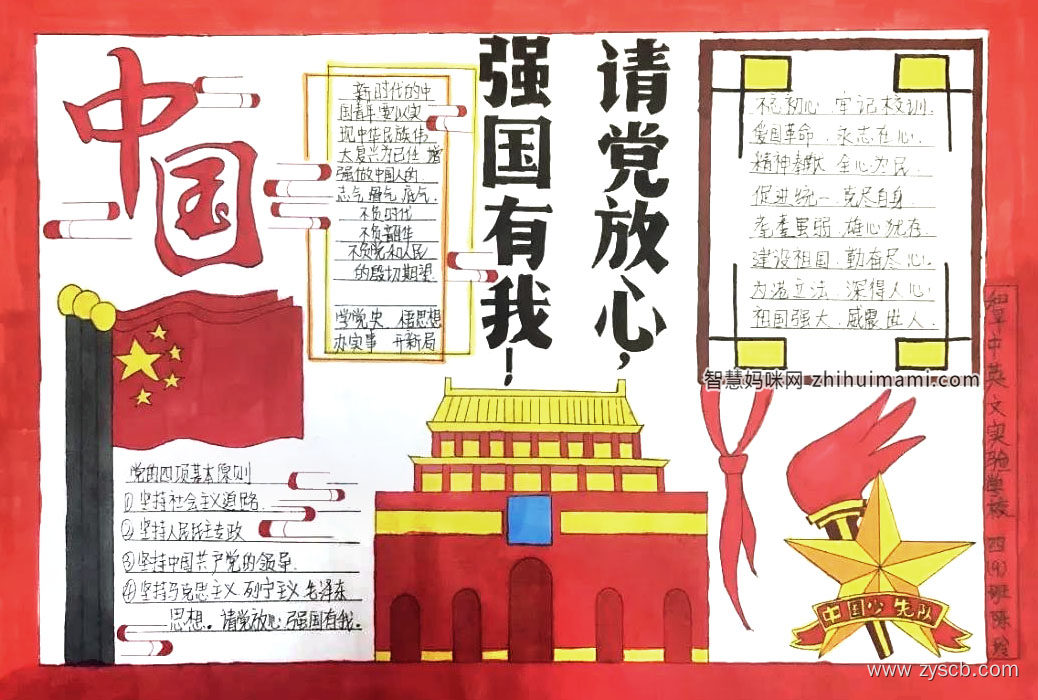 中国
新时代的中
国青年要以实
现中华民族伟
大复兴为己任 增
强做中国人的
志气 骨气 底气.
不负时代
不负韶华
不负党和人民
的殷切期望.
学党史 悟思想
办实事 开新局
请党放心,
强国有我!
不忘初心 牢记校训.
爱国革命.永志在心.
精神奉献 全心为民.
促进统一.克尽自身.
雄心犹存.
建设祖国.勤奋尽心.
为港立法.深得人心.
祖国强大.威震世人.
智慧妈咪网 zhihuimami.com
党的四项基本原则
①坚持社会主义道路.
②坚持人民民主专政
③坚持中国共产党的领导.
④坚持马克思主义 列宁主义 毛泽东
思想。请党放心.强国有我.
中国少先队
中英文实验学校 四(9)班陈
www.zyscb.com